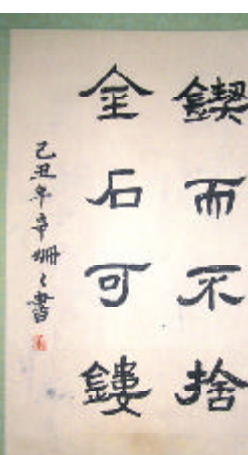 鍥而不捨
金石可鏤
己丑年辛姗〻書